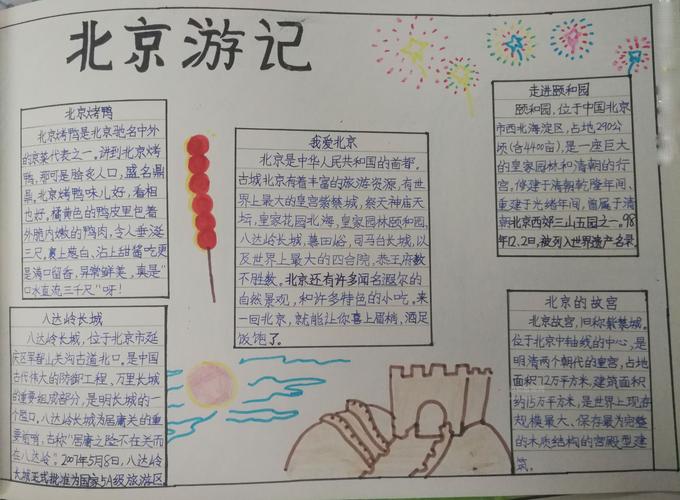 北京游记
北京烤鸭
北京烤鸭是北京驰名中外
的京菜代表之一。讲到北京烤
鸭，那可是脍炙人口，盛名鼎
鼎。北京烤鸭味儿好，看相
也好，橘黄色的鸭皮里包着
外脆内嫩的鸭肉，令人垂涎
三尺，裹上葱白、沾上甜酱吃更
是满口留香，异常鲜美，真是"
口水直流三千尺"呀！
八达岭长城
八达岭长城，位于北京市延
庆区军都山关沟古道北口。是中国
古代伟大的防御工程，万里长城
的重要组成部分，是明长城的一
个隘口。八达岭长城为居庸关的重
要前哨，古称"居庸之险不在关而
在八达岭。2007年5月8日，八达岭
长城正式批准为国家5A级旅游区
我爱北京
北京是中华人民共和国的首都。
古城北京有着丰富的旅游资源，有世
界上最大的皇宫紫禁城，祭天神庙天
坛，皇家花园北海，皇家园林颐和园，
八达岭长城，慕田峪，司马台长城，以
及世界上最大的四合院，恭王府数
不胜数。北京还有许多闻名遐尔的
自然景观，和许多特色的小吃。来
一回北京，就能让你喜上眉梢、酒足
饭饱了。
走进颐和园
颐和园，位于中国北京
市西北海淀区，占地290公
顷（合4400亩），是一座巨大
的皇家园林和清朝的行
宫，修建于清朝乾隆年间、
重建于光绪年间，曾属于清朝
北京西郊三山五园之一。98
年12.2日，被列入世界遗产名录。
北京的故宫
北京故宫，旧称紫禁城。
位于北京中轴线的中心，是
明清两个朝代的重宫，占地
面积72万平方米，建筑面积
约15万平方米，是世界上现存
规模最大、保存最为完整
的木质结构的宫殿型建
筑。